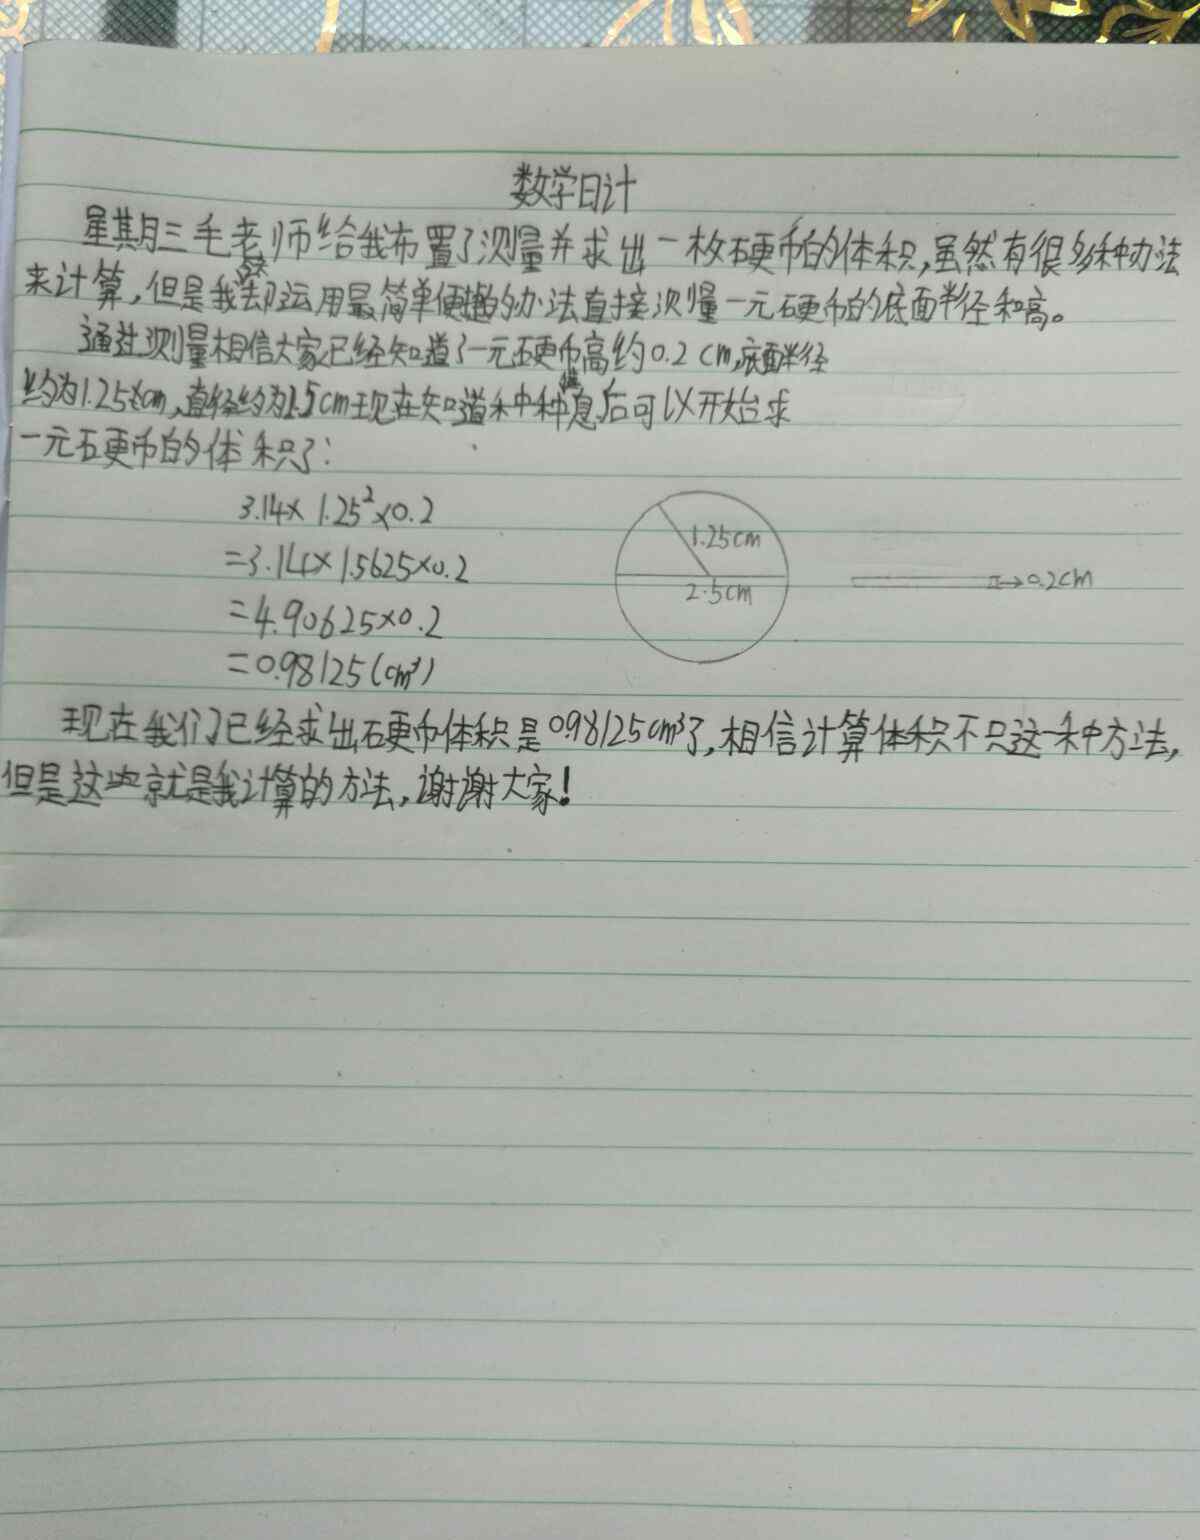 数学日计
星期三毛老师给我布置了测量并求出一枚硬币的体积,虽然有很多种办法
来计算,但是我却运用最简单便捷的办法直接测量一元硬币的底面半径和高。
通过测量相信大家已经知道了一元硬币高约0.2cm,底面半径
约为1.25cm,直径约为2.5cm现在知道种种信息后可以开始求
一元硬币的体积了:
3.14×1.25²×0.2
=3.14×1.5625×0.2
=4.90625×0.2
=0.98125(cm³)
1.25cm
2.5cm
→0.2cm
现在我们已经求出硬币体积是0.98125cm³了,相信计算体积不只这一种方法,
但是这也就是我计算的方法,谢谢大家!